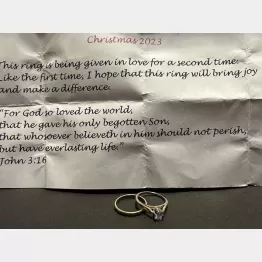 Christmas 2023
This ring is being given in love for a second time.
Like the first time, I hope that this ring will bring joy
and make a difference.
"For God so loved the world,
that he gave his only begotten Son,
that whosoever believeth in him should not perish,
but have everlasting life."
John 3:16